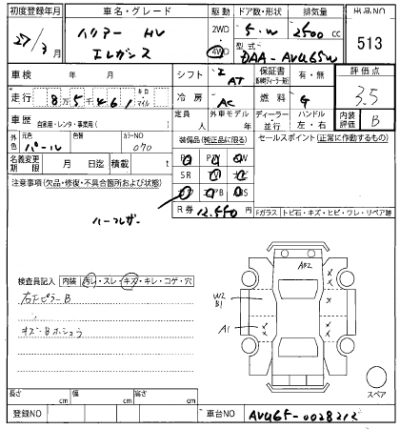 初度登録年月 車名・グレード 駆動 ドア数・形状 排気量 出品NO
27/3月 ハリアー HV 2WD 4WD 5.W 2500cc 513
エレガンス 型式 DAA-AVU65W
車検 年 月 シフト AT 保証書 有・無 評価点
走行 8万5千461 キロ マイル 冷房 AC 燃料 G 3.5
車歴 自家用・レンタ・事業用( ) 定員 人 外車モデル 年 ディーラー 並行 ハンドル 左・右 内装評価 B
外色 元色 パール 色 カラーNO 070 装備品(純正品に限る) セールスポイント(正常に作動するもの)
名義変更期限 月 日迄 積載 t
SR
注意事項(欠品・修復・不具合箇所および状態)
ハーフレザー
R券 12,440円 Fガラス トビ石・キズ・ヒビ・ワレ・リペア跡
検査員記入 内装 汚レ・スレ・キズ・キレ・コゲ・穴
右Fピラー B
キズ・Bホシュウ
W2
B1
A1
スペア
長さ cm 幅 cm 高さ cm
登録NO 車台NO AVU65-0028212